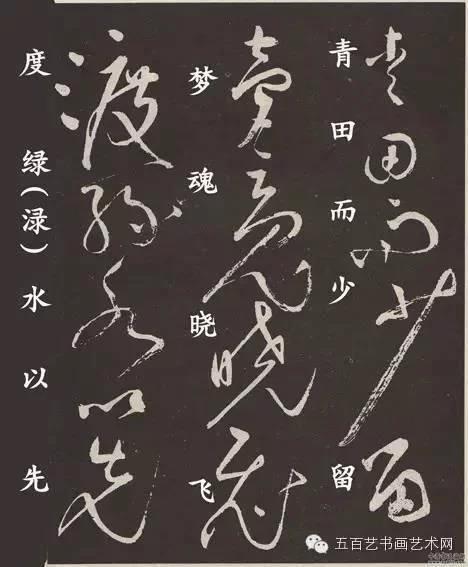 青田而少留
梦魂晓飞
度绿(渌)水以先
五百艺书画艺术网